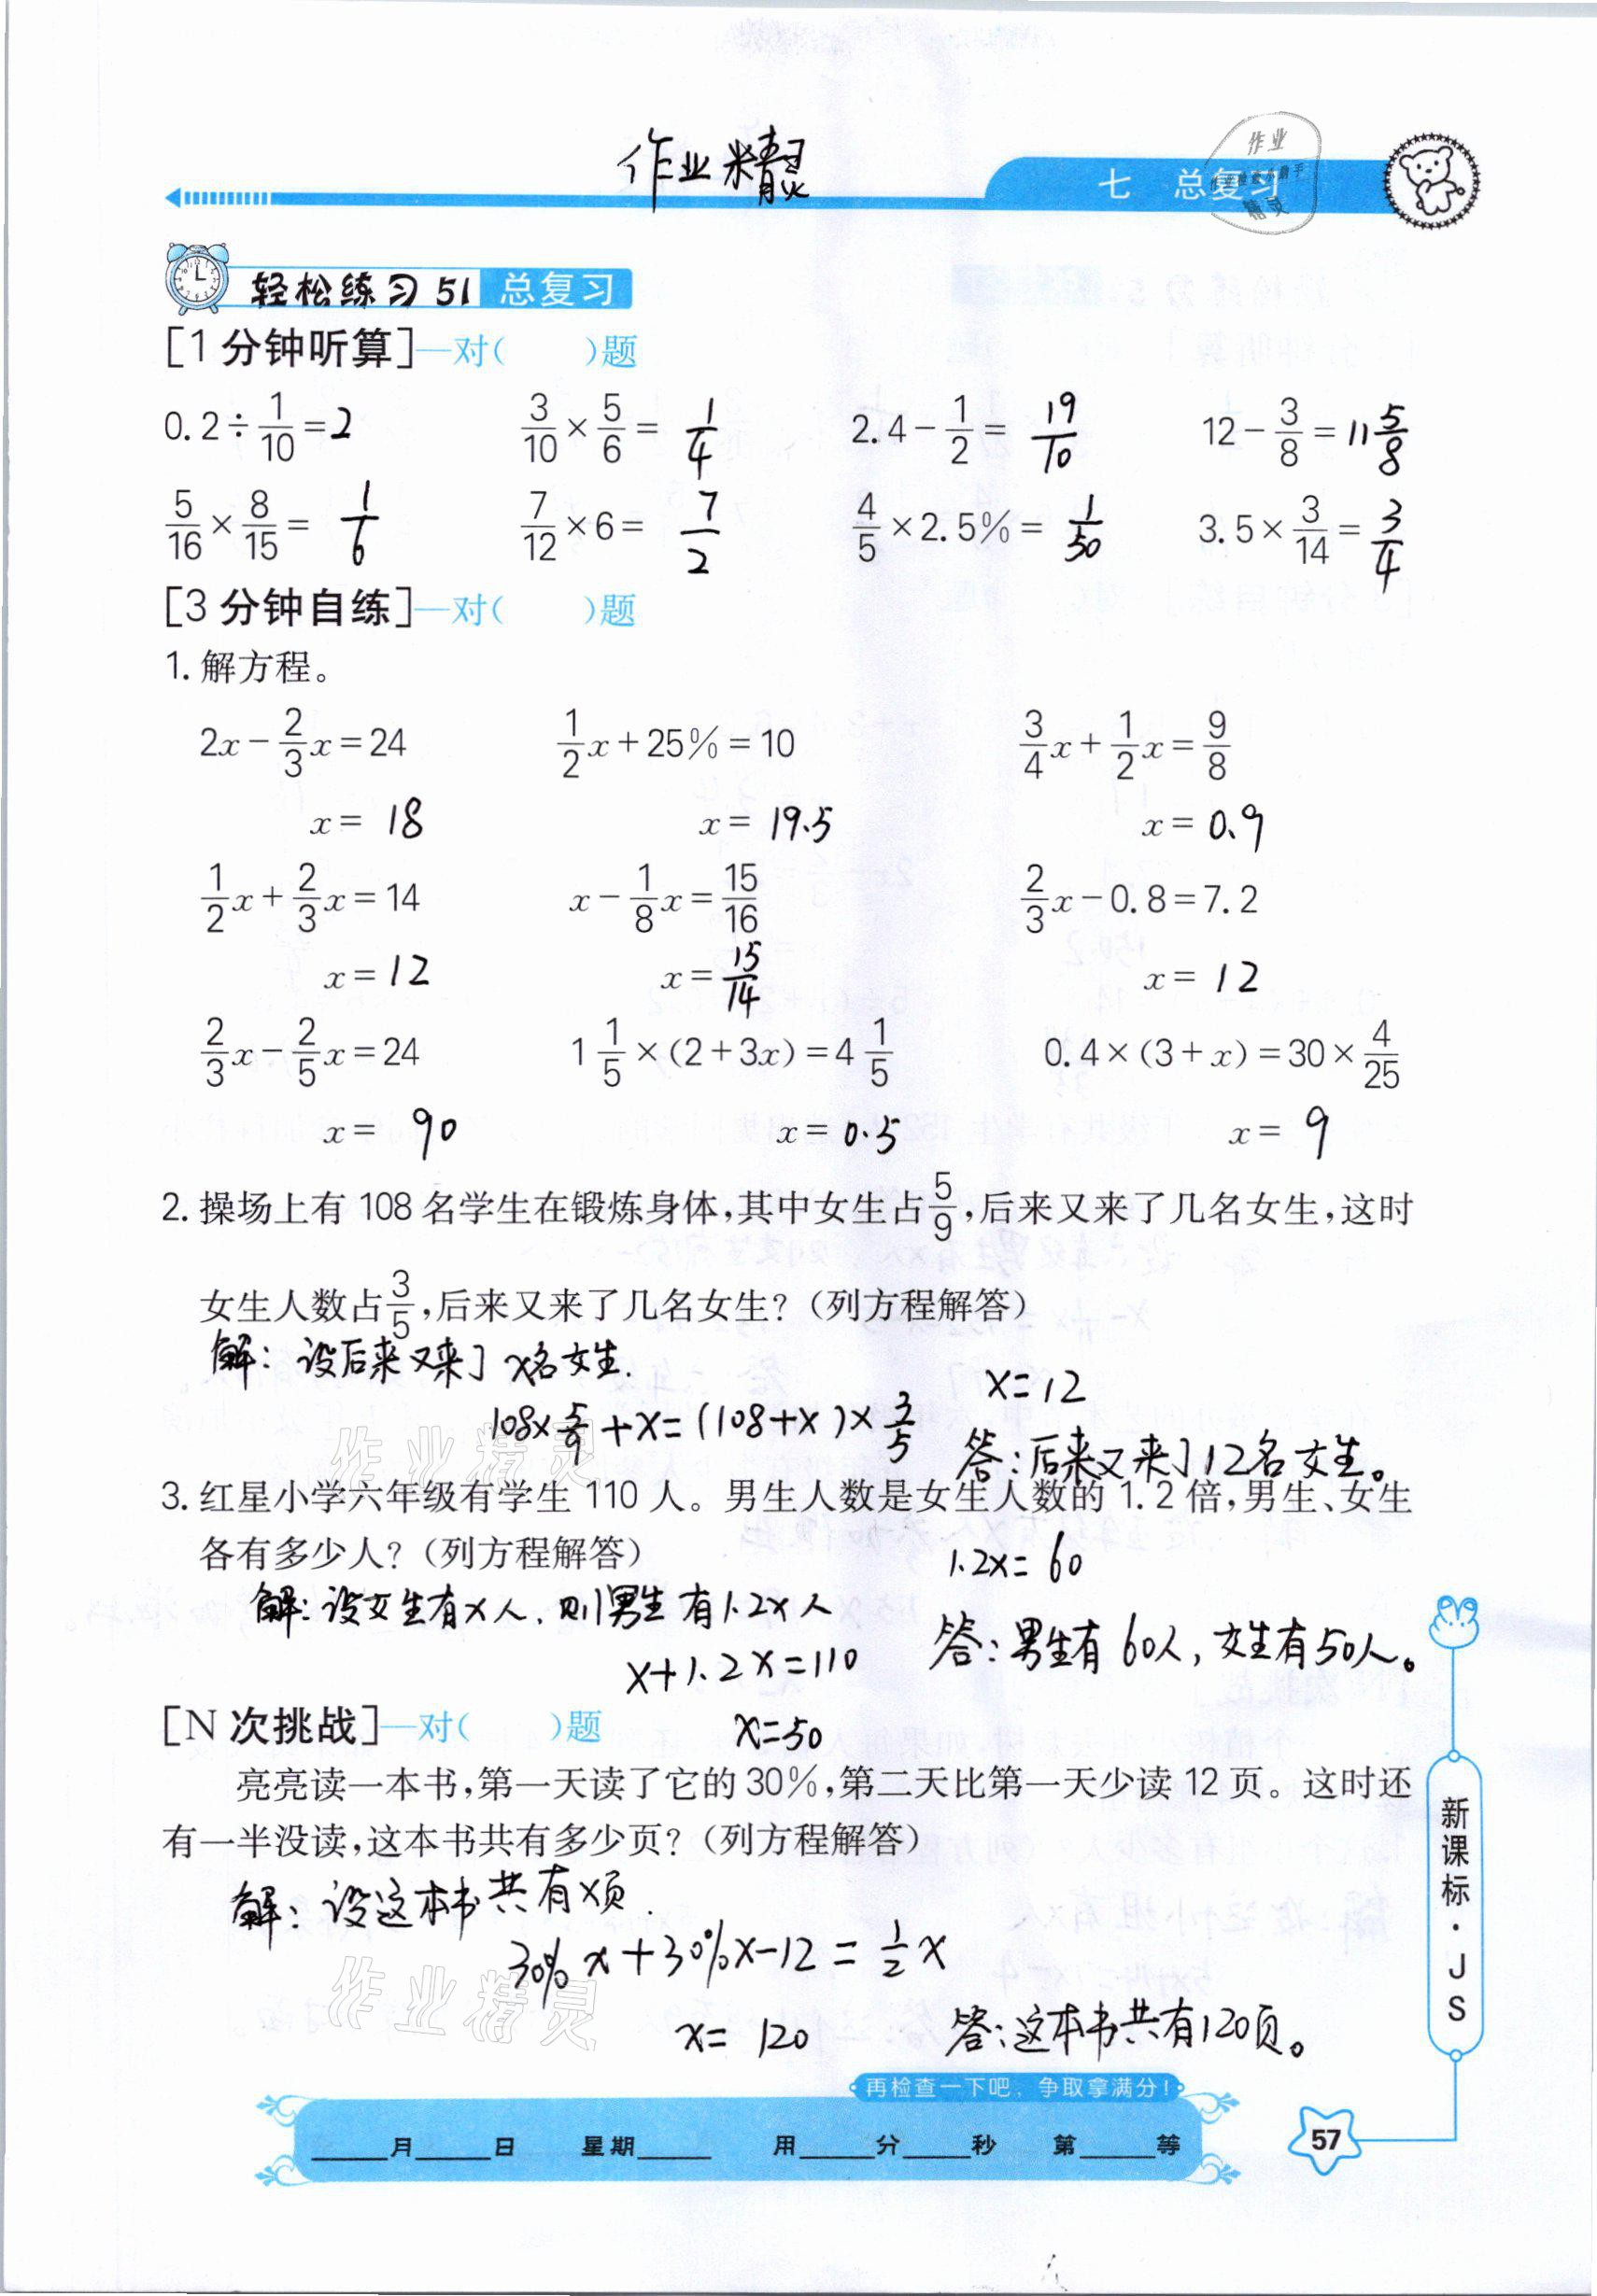 作业精灵
七 总复习
作业
精灵
轻松练习 51 总复习
[1 分钟听算]—对( )题
0.2÷1/10=2 3/10×5/6=1/4 2.4-1/2=19/10 12-3/8=11 5/8
5/16×8/15=1/6 7/12×6=7/2 4/5×2.5%=1/50 3.5×3/14=3/4
[3 分钟自练]—对( )题
1. 解方程。
2x-2/3x=24 1/2x+25%=10 3/4x+1/2x=9/8
x=18 x=19.5 x=0.9
1/2x+2/3x=14 x-1/8x=15/16 2/3x-0.8=7.2
x=12 x=15/14 x=12
2/3x-2/5x=24 1 1/5×(2+3x)=4 1/5 0.4×(3+x)=30×4/25
x=90 x=0.5 x=9
2. 操场上有 108 名学生在锻炼身体,其中女生占5/9,后来又来了几名女生,这时
女生人数占3/5,后来又来了几名女生?(列方程解答)
解:设后来又来了x名女生.
108×5/9+x=(108+x)×3/5
x=12
答:后来又来了12名女生。
3. 红星小学六年级有学生 110 人。男生人数是女生人数的 1.2 倍,男生、女生
各有多少人?(列方程解答)
解:设女生有x人,则男生有1.2x人
x+1.2x=110
x=50
1.2x=60
答:男生有60人,女生有50人。
[N 次挑战]—对( )题
亮亮读一本书,第一天读了它的 30%,第二天比第一天少读 12 页。这时还
有一半没读,这本书共有多少页?(列方程解答)
解:设这本书共有x页.
30%x+30%x-12=1/2x
x=120
答:这本书共有120页。
作业精灵
作业精灵
新课标·JS
再检查一下吧,争取拿满分!
____月____日 星期____ 用____分____秒 第____等
57